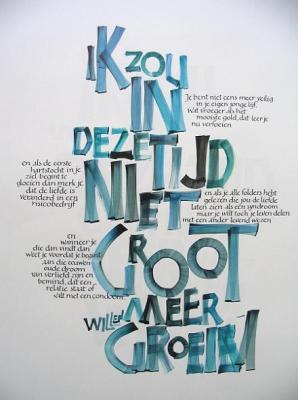 IK ZOU
IN
DEZE TIJD
NIET
GROOT
WILLEN MEER
GROEIEN
Je bent niet eens meer veilig
in je eigen jongelijf.
Wat vroeger als het
mooiste gold, dat leer je
nu verfoeien
en als de eerste
hartstocht in je
ziel begint te
gloeien dan merk je
dat de liefde is
veranderd in een
risicobedrijf
en als je alle folders hebt
gelezen die jou de liefde
laten zien als een syndroom
maar je wilt toch je leven delen
met een ander levend wezen
en
wanneer je
die dan vindt dan
weet je voordat je begint
aan die eeuwen-
oude droom
van verliefd zijn en
bemind, dat een
relatie staat of
valt met een condoom.